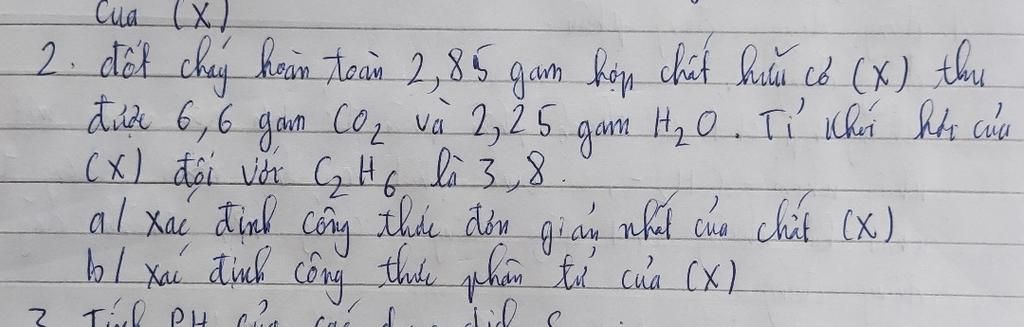 của (X)
2. đốt cháy hoàn toàn 2,85 gam hợp chất hữu cơ (X) thu
được 6,6 gam CO2 và 2,25 gam H2O. Tỉ khối hơi của
(X) đối với C2H6 là 3,8.
a/ xác định công thức đơn giản nhất của chất (X)
b/ xác định công thức phân tử của (X)
3. Tính PH của các dung dịch